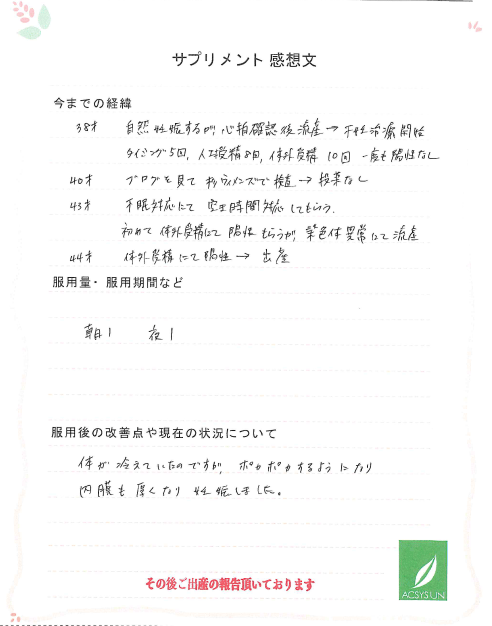 サプリメント 感想文
今までの経緯
38才 自然妊娠するが、心拍確認後流産→不妊治療開始
タイミング5回, 人工授精8回, 体外受精 10回 一度も陽性なし
40才 ブログを見て 杉ウィメンズで 検査→投薬なし
43才 不眠対応にて 空王時間対応してもらう.
初めて 体外受精にて 陽性もらうが, 染色体異常にて流産
44才 体外受精にて陽性→ 出産
服用量・服用期間など
朝1 夜1
服用後の改善点や現在の状況について
体が冷えていたのですが, ポカポカするようになり
内膜も厚くなり 妊娠しました。
その後ご出産の報告頂いております
ACSYSUN